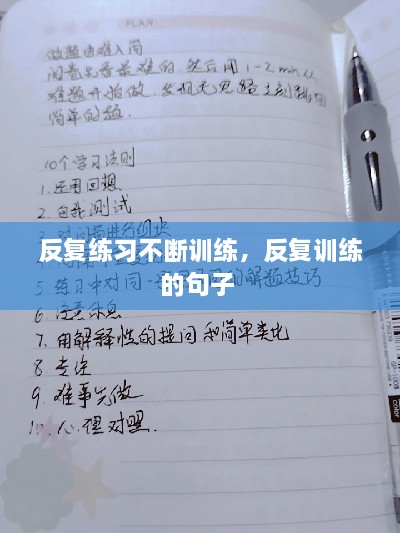 PLAN
做题由难入简
阅卷先看最难的,然后用1-2 min从
难题开始做,发现无思路立刻跳回
简单的题.
10个学习法则
1.运用回想
2.自我测试
对问题进行组块
反复练习不断训练，反复训练
的句子
5.练习中对同一 的解题技巧
6.注意休息
7.用解释性的提问和简单类比
8.专注
9.难事先做
10.心理对照.
GP-1008
color